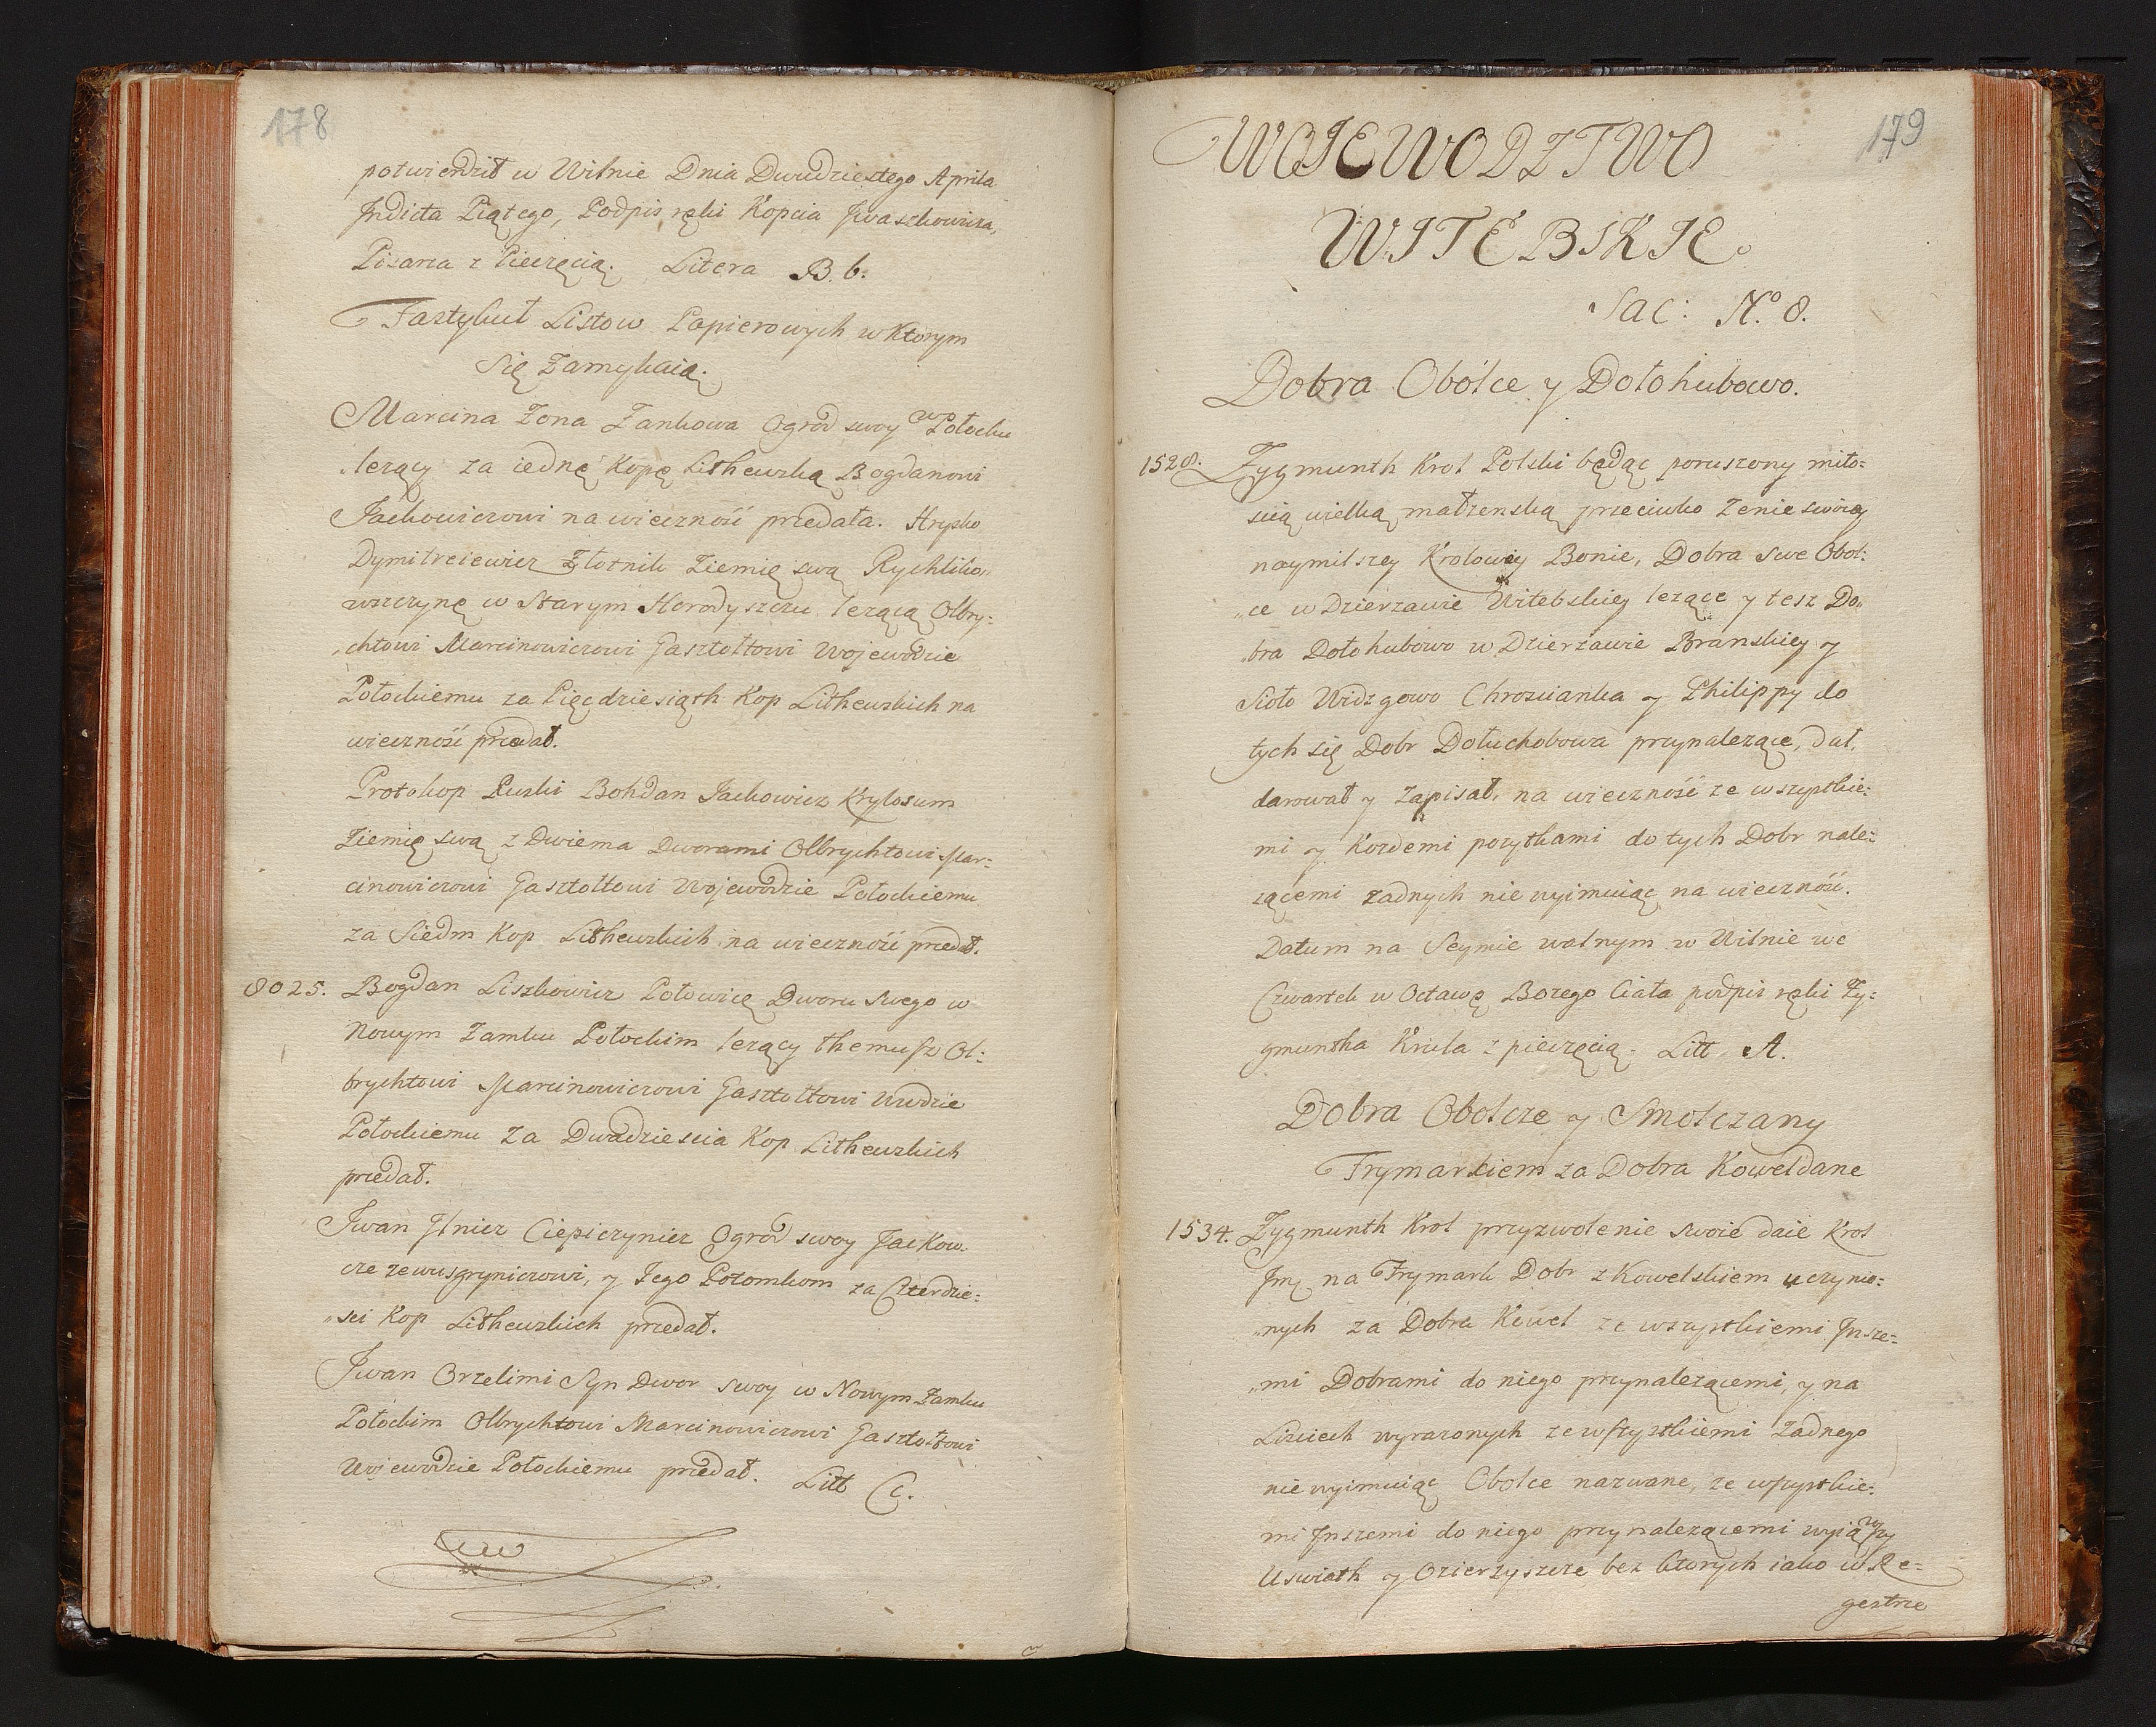 178
potwierdził w Wilnie Dnia Dwudziestego Aprila
Indicta Piątego, Podpis ręki Kopcia Iwaszkowicza,
Pisarza z Pieczęcią. Litera B. b.
Fastykuł Listow Papierowych w Ktorym
Się Zamykaią.
Marcina Zona Zankowa Ogrod swoy w Połocku
lezący za iednę Kopę Lithewską Bogdanowi
Jackowiczowi na wieczność przedała. Hrysko
Dymitreiewicz Złotnik Ziemię swą Rychliko„
wszczynę w Starym Horodyszczu lezącą Olbry:
„chtowi Marcinowiczowi Gasztołtowi Wojewodzie
Połockiemu za Pięcdziesiąth Kop Lithewskich na
wieczność przedał.
Protokop Ruski Bohdan Jackowicz Krylosum
Ziemię swą z Dwiema Dworami Olbrychtowi Mar:
cinowiczowi Gasztoltowi Wojewodzie Połockiemu
za Siedm Kop Lithewskich na wieczność przedał.
8025. Bogdan Liszkowicz Połowicę Dworu Swego w
Nowym Zamku Połockim lezący themusz Ol:
brychtowi Marcinowiczowi Gasztołtowi Wwdzie
Połockiemu Za Dwadziescia Kop Lithewskich
przedał.
Iwan Ciepiczynicz Ogrod swoy Jackow.
y Jego Potomkom za Czterdzie:
„sci Kop Lithewskich przedał.
Iwan Orzelimi Syn Dwor swoy w Nowym Zamku
Połockim Olbrychtowi Marcinowiczowi Gasztołtowi
Wojewodzie Połockiemu przedał. Litt C c.
179
WOJEWODZTWO
WITEBSKIE
Sac: No. 8.
Dobra Obólce y Dołohubowo.
1528. Zygmunth Krol Polski będąc poruszony miło:
scią wielką małzenską przeciwko Zenie swoiey
naymilszey Krolowey Bonie, Dobra swe Obol:
„ce w Dzierzawie Witebskiey lezące y tesz Do„
„bra Dołohubowo w Dzierzawie Branskiey y
Sioło Widzgowo Chroscianka y Philippy do
tych się Dobr Dołuchobowa przynalezące, dał,
darował y Zapisał, na wieczność ze wszystkie:
mi y Kozdemi pozytkami do tych Dobr nale:
zącemi zadnych nie wyimuiąc na wieczność.
Datum na Seymie walnym w Wilnie we
Czwartek w Octawę Bozego Ciała podpis ręki Zy:
gmuntha Krula z pieczęcią. Litt. A.
Dobra Obolcze y Smolczany
Frymarkiem za Dobra Kowel dane
1534. Zygmunth Krol przyzwolenie swoie daie Krol
Jmę na Frymark Dobr z Kowelskiem uczynio:
„nych za Dobra Kowel ze wszystkiemi Insze:
„mi Dobrami do niego przynalezącemi, y na
Lisciech wyrazonych ze wszystkiemi Zadnego
nie wyimuiąc Obolce nazwane, ze wszystkie:
mi Inszemi do niego przynalezącemi wyiąwszy
Uswiath y Ozierzyszcze bez ktorych iako w Re:
gestrze